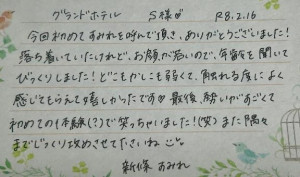 グランドホテル S様♂ R8.2.16
今回初めてすみれを呼んで頂き、ありがとうございました!
落ち着いていたけれど、お顔が若いので、年齢を聞いて
びっくりしました!どこもかしこも弱くて、触れる度によく
感じてもらえて嬉しかったです♡最後、勢いがすごくて
初めての体験(?)で笑っちゃいました!(笑)また隅々
までじっくり攻めさせて下さいね
新條 すみれ